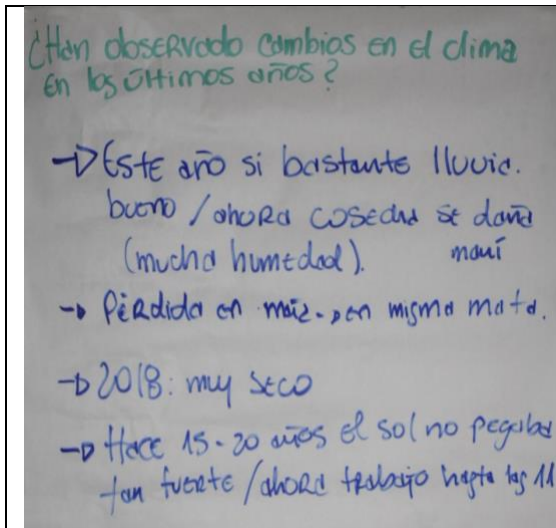 ¿Han observado cambios en el clima
en los últimos años?
→ Este año si bastante lluvia.
bueno / ahora cosecha se daña
(mucha humedad). maní
→ Pérdida en maíz → en misma mata.
→ 2018: muy seco
→ Hace 15-20 años el sol no pegaba
tan fuerte / ahora trabajo hasta las 11